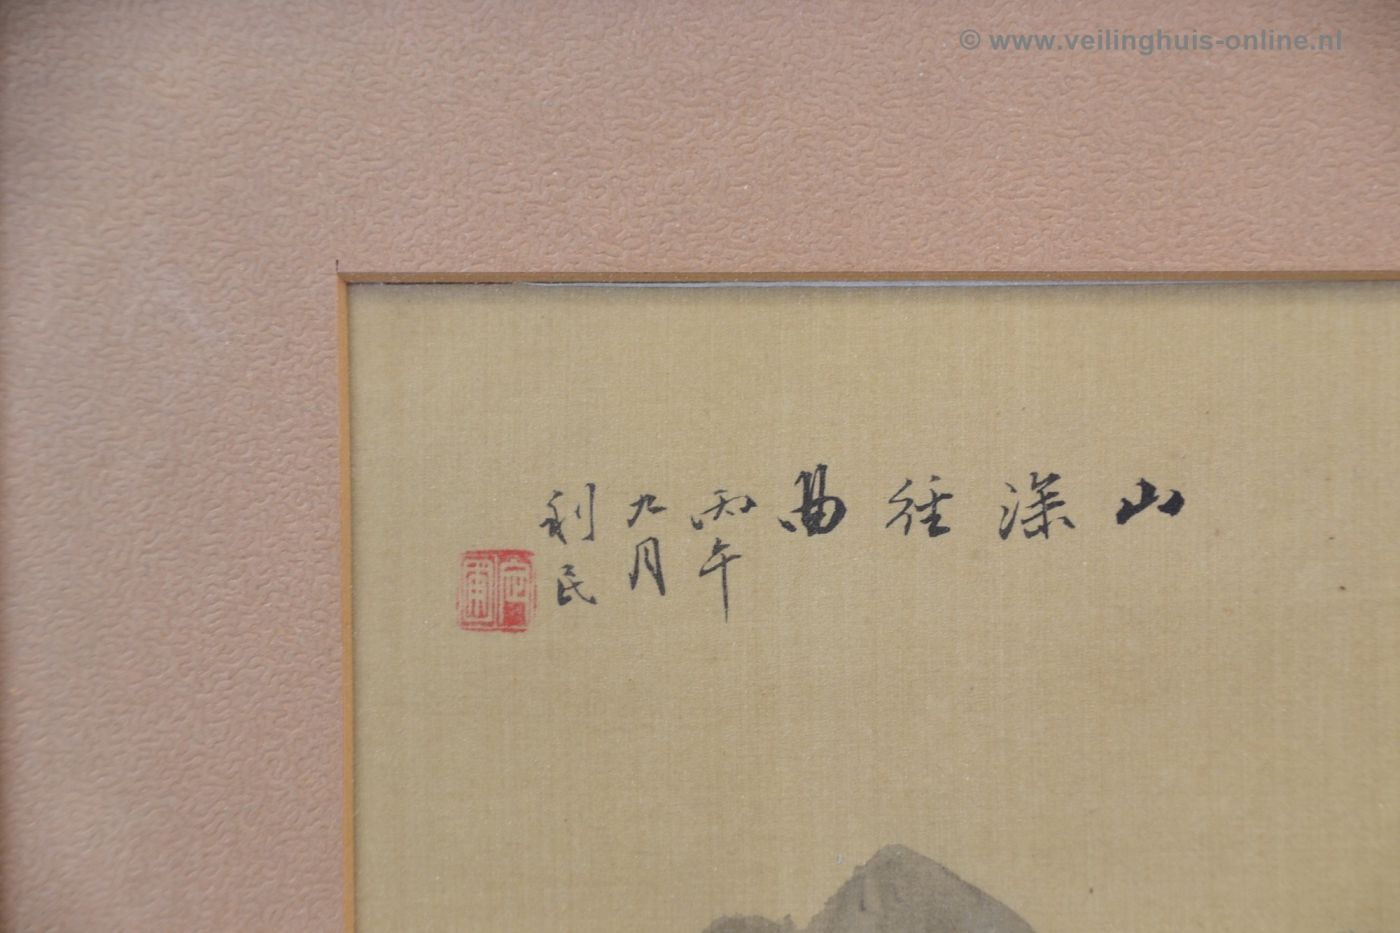 © www.veilinghuis-online.nl
山深徑曲
丙午
九月
利民